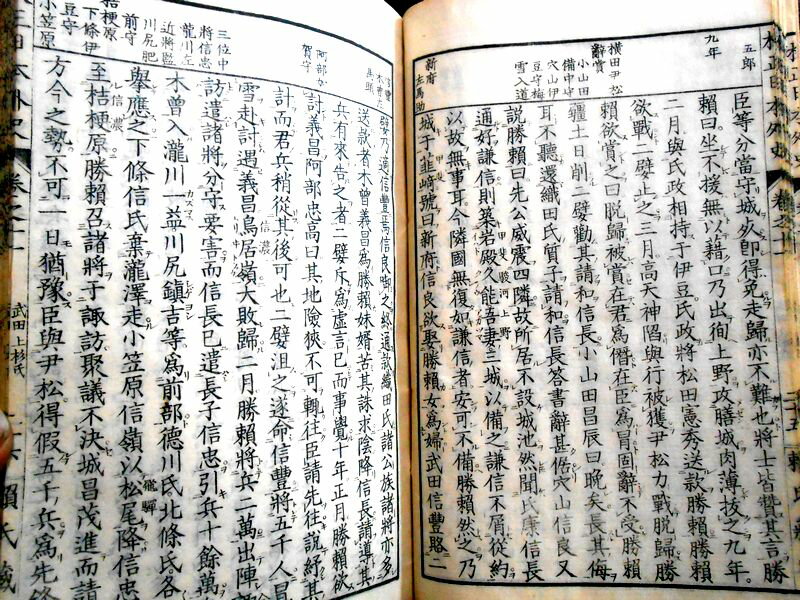 五郎
九年
橫田尹松
辭賞
小山田
備中守
穴山伊
豆守梅
雪入道
新府
左馬助
臣等分當守城必即得免走歸亦不難也將士皆贊其言勝
賴曰坐不援無以藉口乃出徇上野攻膳城肉薄拔之九年
二月與氏政相持于伊豆氏政將松田憲秀送款勝賴勝賴
欲戰二嬖止之三月高天神陷與行被獲尹松力戰脫歸勝
賴欲賞之曰脫歸被賞在君爲僭在臣爲冒固辭不受勝賴
疆土日削二嬖勸其請和信長小山田昌辰曰晚矣長其侮
耳不聽還織田氏質子請和信長答書辭甚倨穴山信良又
說勝賴曰先公威震四隣故所居不設城池然聞氏康信長
通好謙信則築岩殿久能吾妻三城以備之謙信不屑從約
以故無事耳今隣國無復如謙信者安可不備勝賴然之乃
城于韮崎號曰新府信良欲娶勝賴女爲婦武田信豐賂二
木曾左
馬頭
阿部加
賀守
三位中
將信忠
瀧川左
近將監
川尻肥
前守
桔梗原
下條伊
豆守
小笠原
嬖乃適信豐焉信良啣之終通款織田氏諸公族諸將亦多
送款者木曾義昌爲勝賴妹婿苦其誅求陰降信長請導其
兵有來告之者二嬖斥爲虛言已而事覺十年正月勝賴欲
討義昌阿部忠高曰其地險狹不可輒往臣請先往說紓其
計而君兵稍從其後可也二嬖沮之遂命信豐將五千人冒
雪赴討遇義昌鳥居嶺大敗歸二月勝賴將兵二萬出陣諏
訪遣諸將分守要害而信長已遣長子信忠引兵十餘萬
木曾入瀧川一益川尻鎮吉等爲前部德川氏北條氏各
舉應之下條信氏棄瀧澤走小笠原信嶺以松尾降信忠
至桔梗原勝賴召諸將于諏訪聚議不決城昌茂進而請
方今之勢不可一日猶豫臣與尹松得假五千兵爲先鋒
日本外史 卷之十一 武田上杉氏 賴氏藏